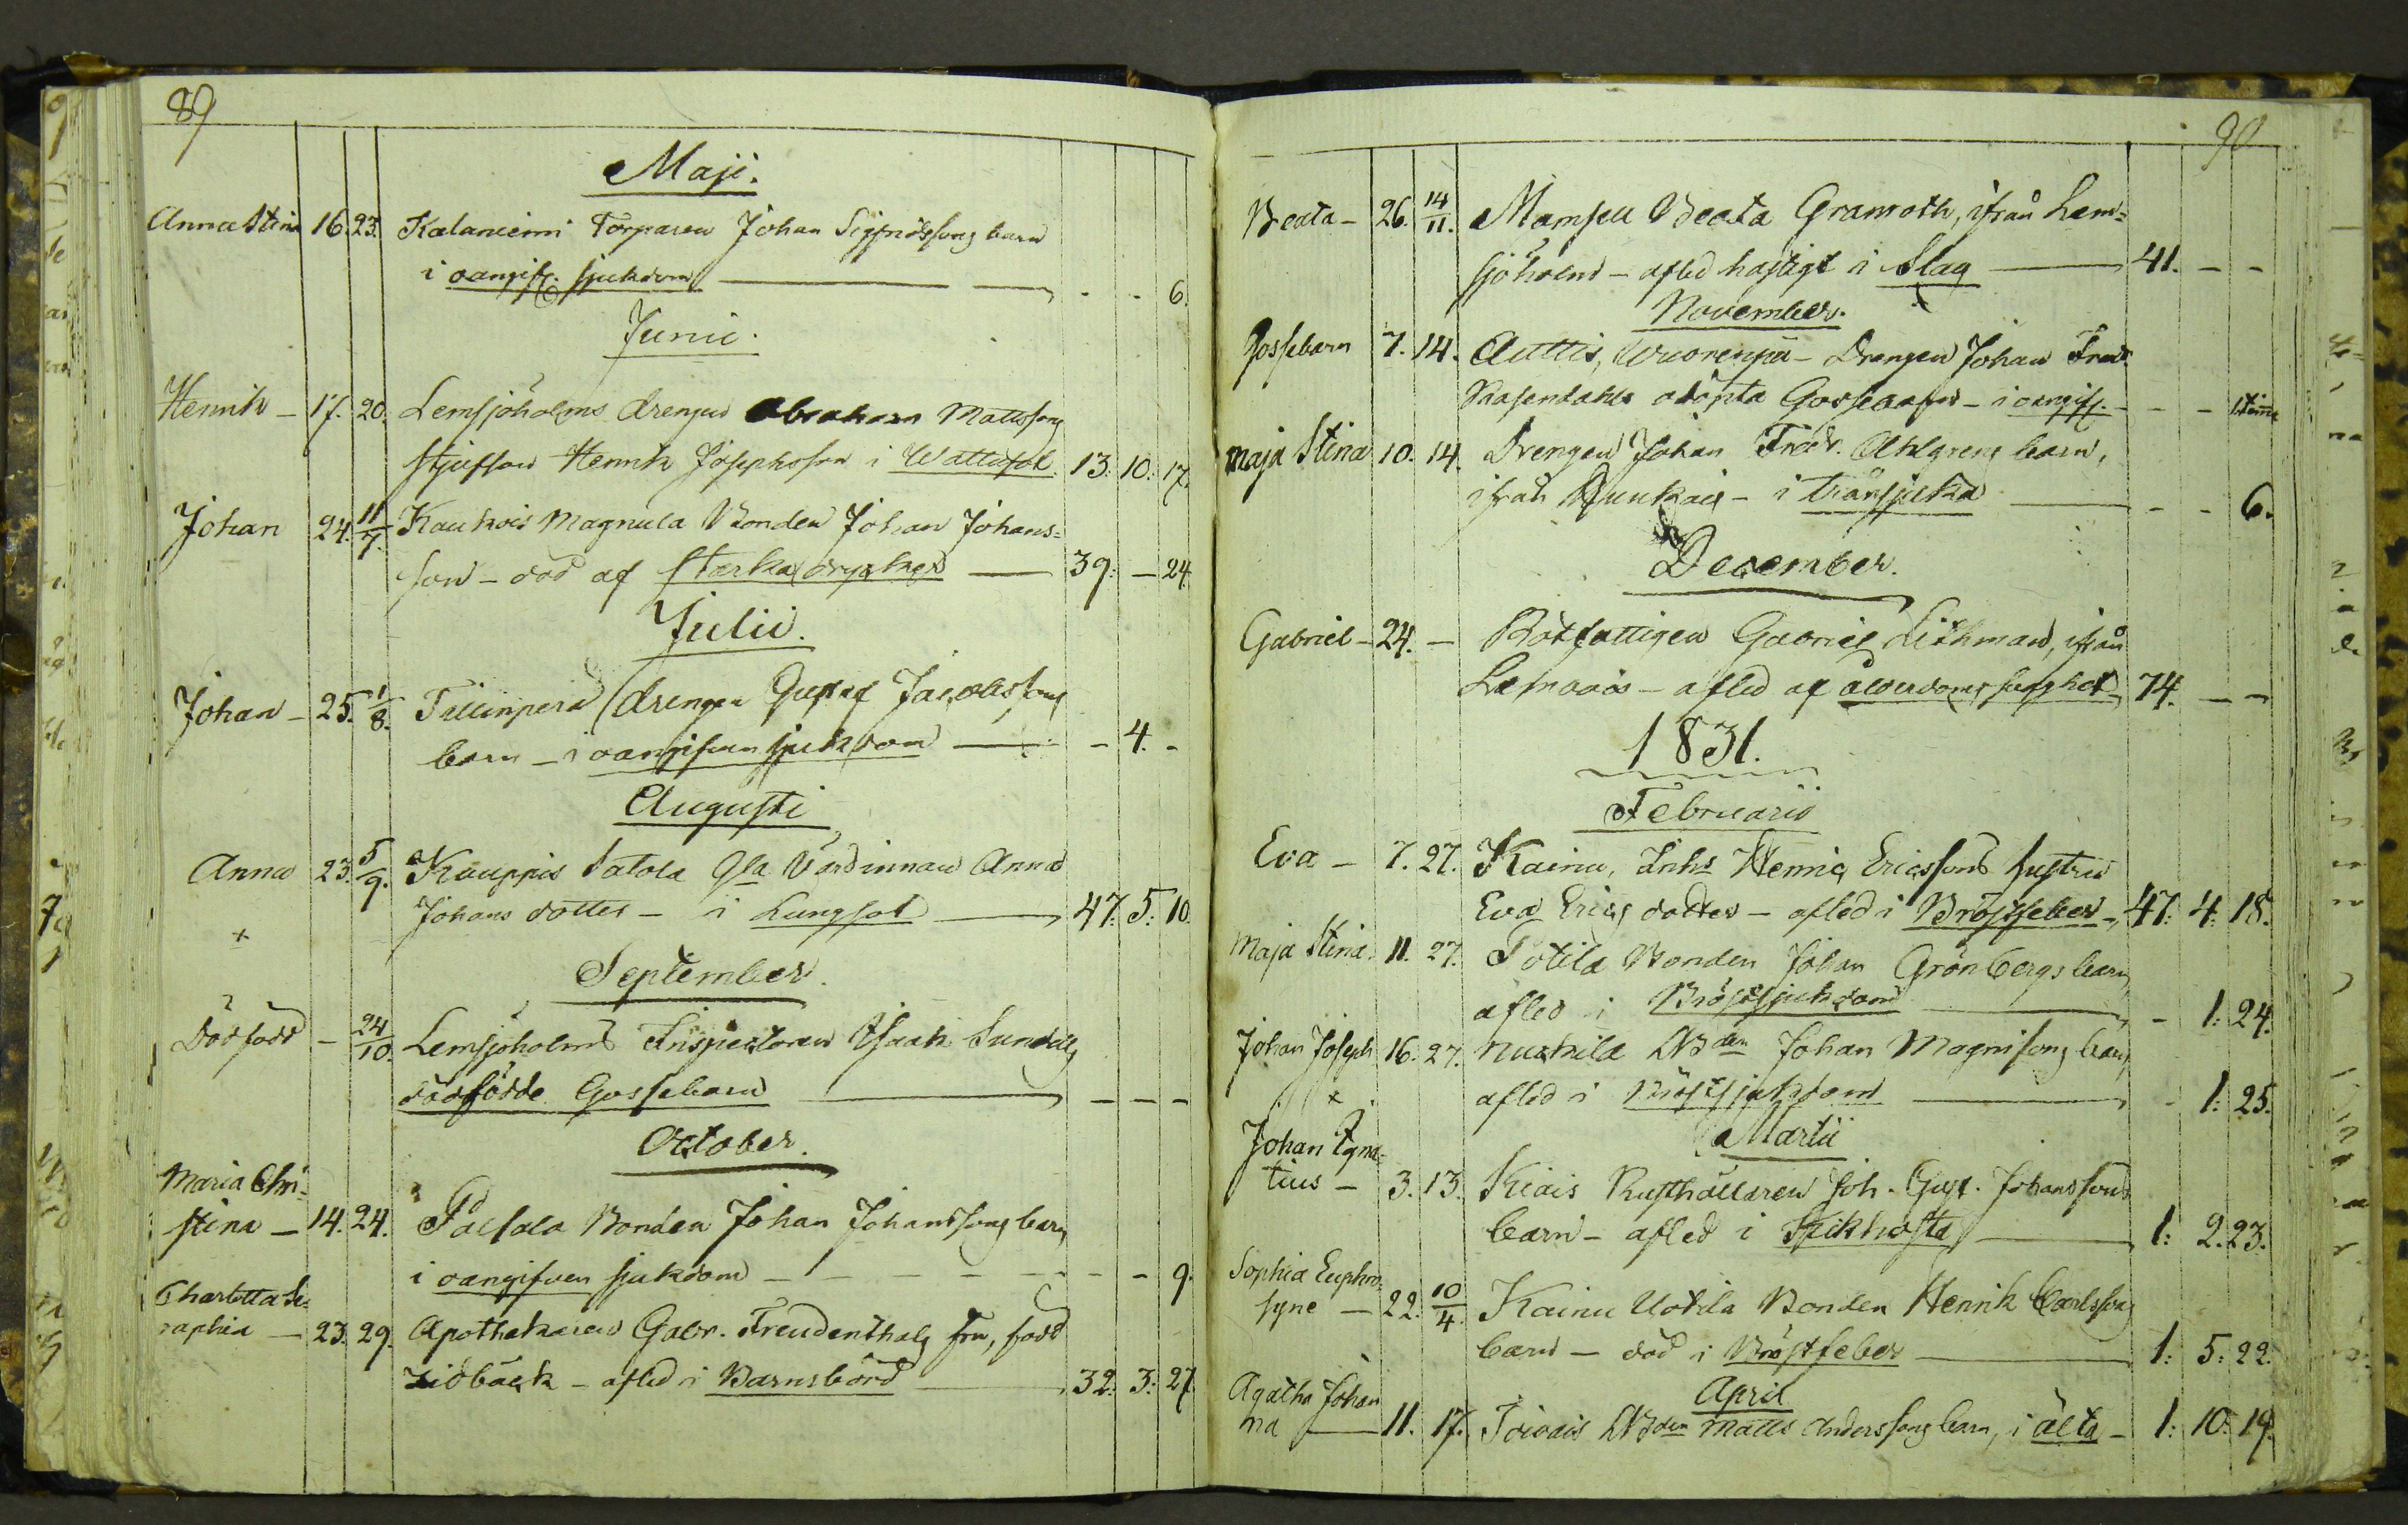 89
Maji.
Anna Stina 16. 23. Kalaniemi Torparen Johan Sigfridssons barn
i oangifv. sjukdom - - 6.
Junii.
Henrik - 17. 20. Lemsjöholms drengen Abraham Mattssons
stjufson Henrik Josephsson i Wattusot 13. 10. 17.
Johan 24. 11/7. Kaukois Magnula Bonden Johan Johans=
son - död af starka drycker 39. - 24.
Julii.
Johan - 25. 1/8. drengen Gustaf Jacobssons
barn - i oangifven sjukdom - 4. -
Augusti
Anna 23. 5/9. Kauppis Satola Gla Värdinnan Anna
+ Johans dotter - i Lungsot 47. 5. 10.
September.
Dödfödd - 24/10. Lemsjöholms Inspectoren Isaak
dödfödde Gossebarn - - -
October.
Maria Chri=
stina - 14. 24. Palsala Bonden Johan Johanssons barn
i oangifven sjukdom - - 9.
Charlotta Se=
raphia - 23. 29. Apothekaren Gabr. Freudenthals fru, född
Lidbäck - afled i Barnsbörd 32. 3. 27.
90
Beata - 26. 14/11. Mamsell Beata Granroth, ifrån Lem=
sjöholm - afled hastigt i Slag 41. - -
November.
Gossebarn 7. 14. Auttis, Wuorenpä - Drengen Johan Fred.
Rasendahls odöpta Gossebarn - i oangifv. - - 1 timme
Maja Stina 10. 14. Drengen Johan Fredr. Ahlgrens barn,
ifrån - i trånsjuka - - 6.
December.
Gabriel - 24. - Rotfattigen Gabriel Lithman, ifrån
- afled af ålderdoms svaghet 74. - -
1831.
Februarii
Eva - 7. 27. Kainu, Inhs Henric Ericssons hustru
Eva Erics dotter - afled i Bröstfeber 47: 4: 18.
Maja Stina. 11. 27. Totila Bonden Johan Grönbergs barn
afled i Bröstsjukdom - 1: 24.
Johan Joseph 16. 27. Nuhkila Bden Johan Magnssons barn
+ afled i Bröstsjukdom - 1: 25.
Martii
Johan Igna=
tius - 3. 13. Kiais Rusthållaren Joh. Gust. Johanssons
barn - afled i Kikhosta 1: 2. 23.
Sophia Euphro=
syne - 22. 10/4. Kainu Uotila Bonden Henrik Carlssons
barn - död i Bröstfeber 1: 5: 22.
April
Agatha Johan
na 11. 17. Toivais Bden Matts Anderssons barn, i älta - 1: 10: 19.